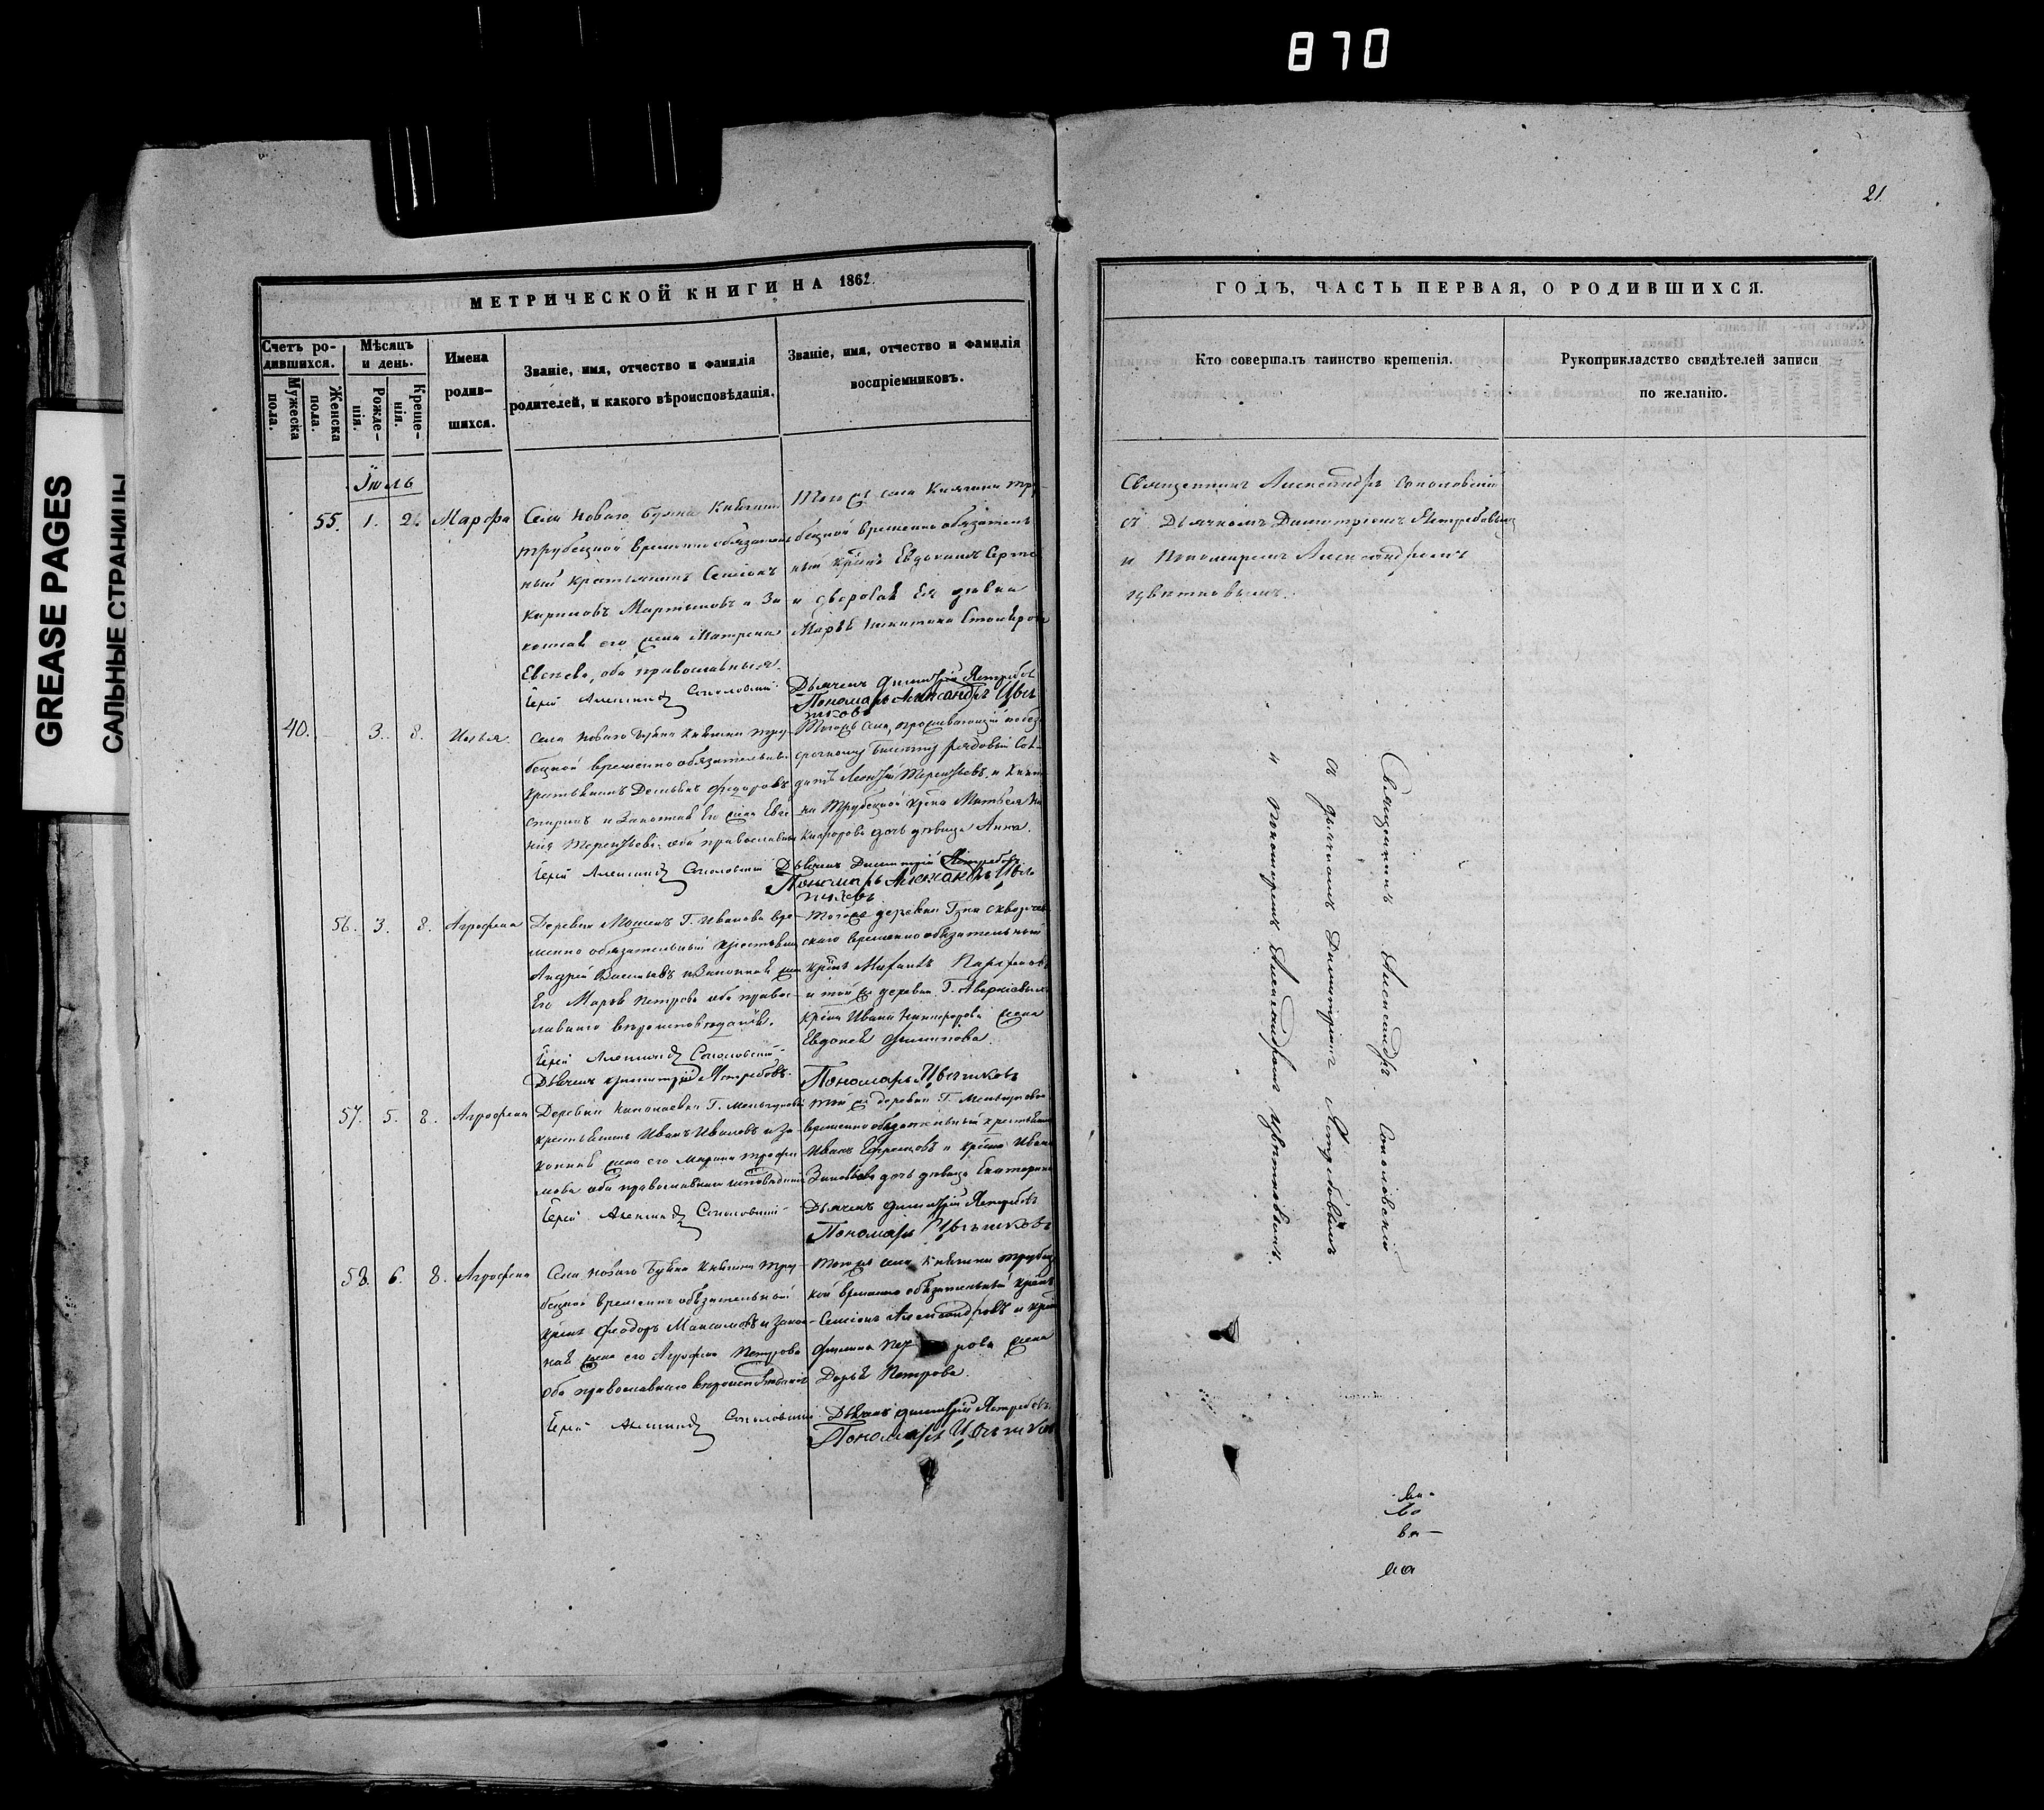 870
21
GREASE PAGES
САЛЬНЫЕ СТРАНИЦЫ
МЕТРИЧЕСКОЙ КНИГИ НА 1862.
Счетъ ро-
дившихся.
Мужеска
пола.
Женска
пола.
Мѣсяцъ
и день.
Рожде-
нія.
Креще-
нія.
Имена
родив-
шихся.
Званіе, имя, отчество и фамилія
родителей, и какого вѣроисповѣданія.
Званіе, имя, отчество и фамилія
воспріемниковъ.
Іюль
55. 1. 2. Марфа
Села Новаго Буяна Княгини
Трубецкой временно обязатель
ный крестьянинъ Семенъ
Мартыновъ и За
конная его жена Матрена
оба православныя.
Іерей Александръ Соколовскій
Того жъ села Княгини Тру
бецкой временно обязатель
ный крѣнъ Евдокимъ
дѣвка
Марѣя Никитина
Дьячекъ Димитрій Ястребовъ
Пономарь Александръ Цвѣт
ковъ
40. – 3. 8. Илья.
Села Новаго Буяна Княгини Тру
бецкой временно обязательный
крестьянинъ Демьянъ Федоровъ
и Законная его жена Евге
нія Терентьева, оба православныя
Іерей Александръ Соколовскій
Тогожъ села, проживающій по без
срочному билету рядовый Сол
датъ Леонтій Терентьевъ и Княги
ни Трубецкой крѣна Матвея Ни
кифорова дочь дѣвица Анна.
Дьячекъ Димитрій Ястребовъ
Пономарь Александръ Цвѣт
ковъ
56. 3. 8. Агрофена
Деревни Г. Иванова вре
менно обязательный крестьянинъ
Андрей Васильевъ и Законная жена
Его Марѣя Петрова оба право
славнаго вѣроисповѣданія.
Іерей Александръ Соколовскій
Дьячекъ Димитрій Ястребовъ.
Тогожъ деревни
скаго временно обязательный
крѣнъ
и той же деревни Г.
крѣна Ивана Никифорова жена
Евдокея Филипова.
Пономарь Цвѣтковъ
57. 5. 8. Агрофена
Деревни Николаевки Г. Мельгуновой
крестьянинъ Иванъ Ивановъ и За
конная жена его Марина Трофи
мова оба православнаго исповѣданія
Іерей Александръ Соколовскій
Той же деревни Г. Мельгуновой
временно обязательный крестьянинъ
Иванъ Ефремовъ и крѣна Ивана
Зиновьева дочь дѣвица Екатерина
Дьячекъ Димитрій Ястребовъ
Пономарь Цвѣтковъ
58. 6. 8. Агрофена
Села Новаго Буяна Княгини Тру
бецкой временно обязательный
крѣнъ Феодоръ Максимовъ и Закон
ная жена его Агрофена Петрова
оба православнаго вѣроисповѣданія
Іерей Александръ Соколовскій
Тогожъ села Княгини Трубец
кой временно обязательный крѣнъ
Семенъ Александровъ и крѣна
Филипа жена
Дарья Петрова.
Дьячекъ Димитрій Ястребовъ.
Пономарь Цвѣтковъ
ГОДЪ, ЧАСТЬ ПЕРВАЯ, О РОДИВШИХСЯ.
Кто совершалъ таинство крещенія.
Рукоприкладство свидѣтелей записи
по желанію.
Священникъ Александръ Соколовскій
съ Дьячкомъ Димитріемъ Ястребовымъ
и Пономаремъ Александромъ
Цвѣтковымъ.
Священникъ Александръ Соколовскій
съ Дьячкомъ Димитріемъ Ястребовымъ
и Пономаремъ Александромъ Цвѣтковымъ.